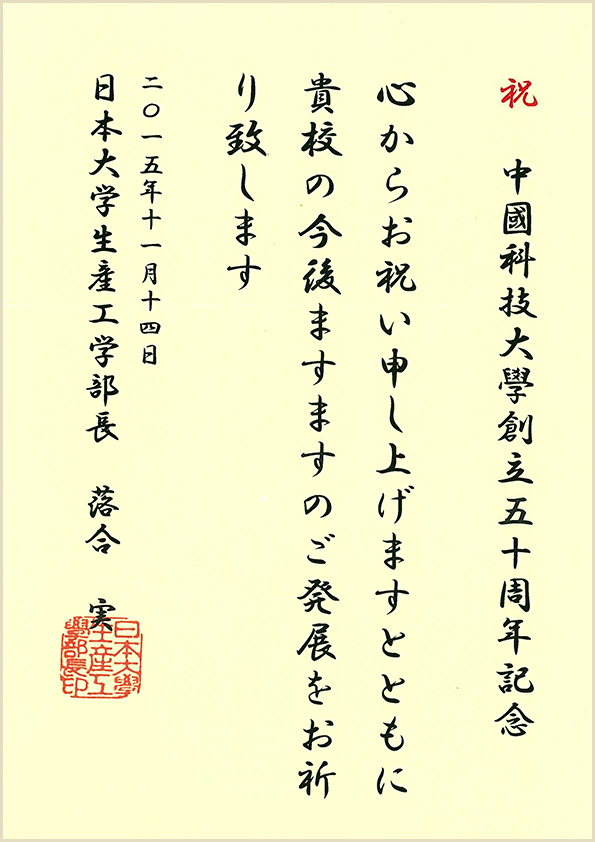 祝　中國科技大學創立五十周年記念
心からお祝い申し上げますとともに
貴校の今後ますますのご発展をお祈
り致します
二〇一五年十一月十四日
日本大学生産工学部長　落合　実
日本大學
生産工
學部長印